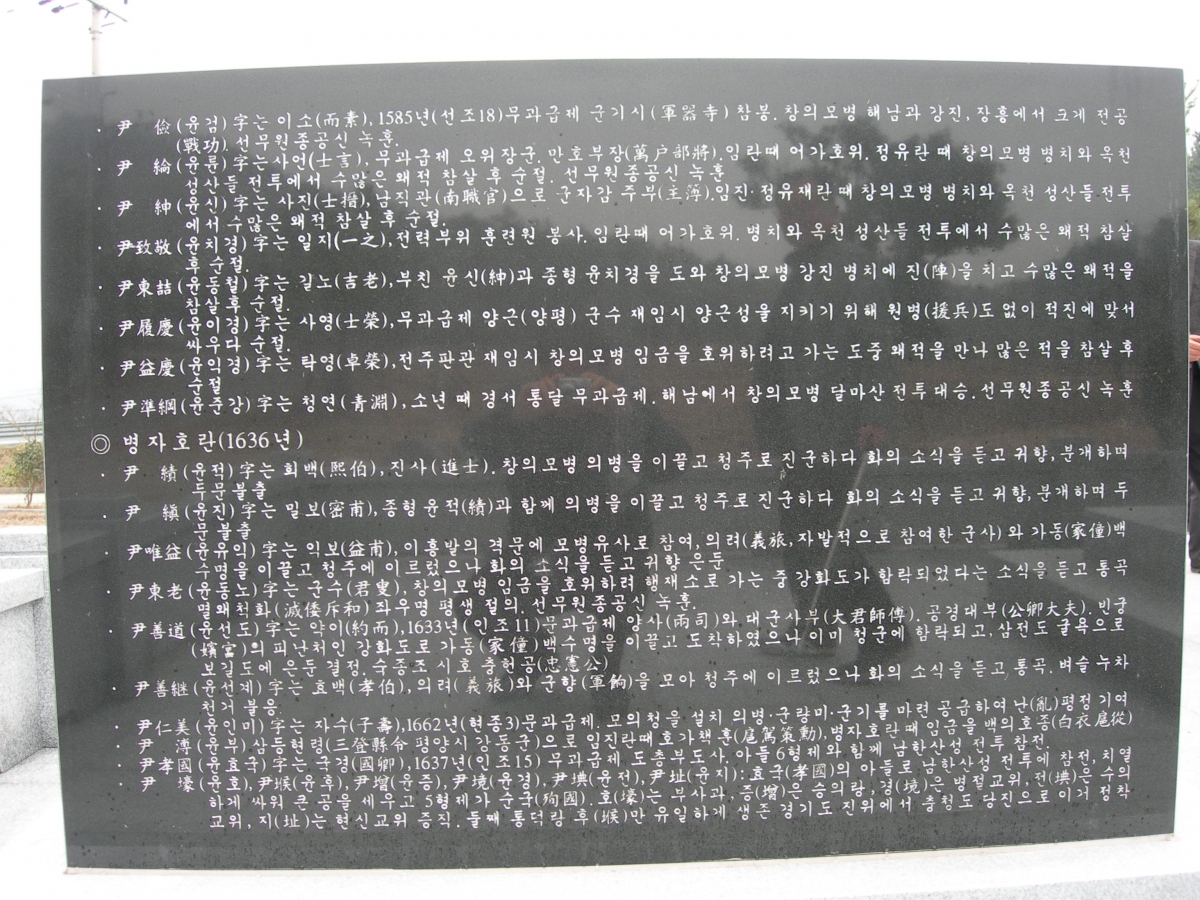 · 尹 儉(윤검) 字는 이소(而素), 1585년(선조18)무과급제 군기시(軍器寺) 참봉. 창의모병 해남과 강진, 장흥에서 크게 전공
(戰功). 선무원종공신 녹훈.
· 尹 綸(윤륜) 字는사언(士言), 무과급제 오위장군. 만호부장(萬户部將).임란때 어가호위. 정유란 때 창의모병 병치와 옥천
성산들 전투에서 수많은 왜적 참살 후 순절. 선무원종공신 녹훈
· 尹 紳(윤신) 字는 사진(士搢),남직관(南職官)으로 군자감 주부(主簿).임진·정유재란 때 창의모병 병치와 옥천 성산들전투
에서 수많은 왜적 참살 후 순절.
· 尹致敬(윤치경) 字는 일지(一之),전력부위 훈련원 봉사. 임란때 어가호위. 병치와 옥천 성산들 전투에서 수많은 왜적 참살
후 순절.
· 尹東喆(윤동철) 字는 길노(吉老),부친 윤신(紳)과 종형 윤치경을 도와 창의모병 강진 병치에 진(陣)을 치고 수많은 왜적을
참살후 순절.
· 尹履慶(윤이경) 字는 사영(士榮),무과급제 양근(양평) 군수 재임시 양근성을 지키기 위해 원병(援兵)도 없이 적진에 맞서
싸우다 순절.
· 尹益慶(윤익경) 字는 탁영(卓榮),전주판관 재임시 창의모병 임금을 호위하려고 가는 도중 왜적을 만나 많은 적을 참살 후
순절
· 尹準綱(윤준강) 字는 청연(青淵),소년 때 경서 통달 무과급제. 해남에서 창의모병 달마산 전투 대승. 선무원종공신 녹훈
◎ 병자호란(1636년)
· 尹 績(윤적) 字는 희백(熙伯),진사(進士). 창의모병 의병을 이끌고 청주로 진군하다 화의 소식을 듣고 귀향,분개하며
두문불출
· 尹 縝(윤진) 字는 밀보(密甫),종형 윤적(績)과 함께 의병을 이끌고 청주로 진군하다 화의 소식을 듣고 귀향,분개하며 두
문불출
· 尹唯益(윤유익) 字는 익보(益甫),이흥발의 격문에 모병유사로 참여,의려(義旅,자발적으로 참여한 군사)와 가동(家僮)백
수명을 이끌고 청주에 이르렀으나 화의 소식을 듣고 귀향 은둔
· 尹東老(윤동노) 字는 군수(君叟), 창의모병 임금을 호위하려 행재소로 가는 중 강화도가 함락되었다는 소식을 듣고 통곡
멸왜척화(滅倭斥和) 좌우명 평생 절의. 선무원종공신 녹훈.
· 尹善道(윤선도) 字는 약이(約而),1633년(인조11)무과급제 양사(兩司)와 대군사부(大君師傅). 공경대부(公卿大夫). 빈궁
(嬪宮)의 피난처인 강화도로 가동(家僮)백수명을 이끌고 도착하였으나 이미 청군에 함락되고,삼전도 굴욕으로
보길도에 은둔 결정. 숙종조 시호 충헌공(忠憲公)
· 尹善継(윤선계) 字는 효백(孝伯),의려(義旅)와 군향(軍餉)을 모아 청주에 이르렀으나 화의 소식을 듣고,통곡,벼슬 누차
천거 불응
· 尹仁美(윤인미) 字는 자수(子壽),1662년(현종3)무과급제. 모의청을 설치 의병·군량미·군기를 마련 공급하여 난(亂)평정 기여
· 尹 溥(윤부) 삼등현령(三登縣令 평양시 강동군)으로 임진란때 호가책훈(扈駕策勳),병자호란때 임금을 백의호종(白衣扈從)
· 尹孝國(윤효국) 字는 국경(國卿),1637년(인조15) 무과급제 도총부도사.아들 6형제와 함께 남한산성 전투 참전.
· 尹 壕(윤호), 尹堠(윤후), 尹增(윤증), 尹境(윤경), 尹㙉(윤전), 尹址(윤지): 효국(孝國)의 아들로 남한산성 전투에 참전, 치열
하게 싸워 큰 공을 세우고 5형제가 순국(殉國). 호(壕)는 부사과, 증(增)은 승의랑, 경(境)은 병절교위, 전(㙉)은 수의
교위, 지(址)는 현신교위 증직. 둘째 통덕랑 후(堠)만 유일하게 생존 경기도 진위에서 충청도 당진으로 이거 정착